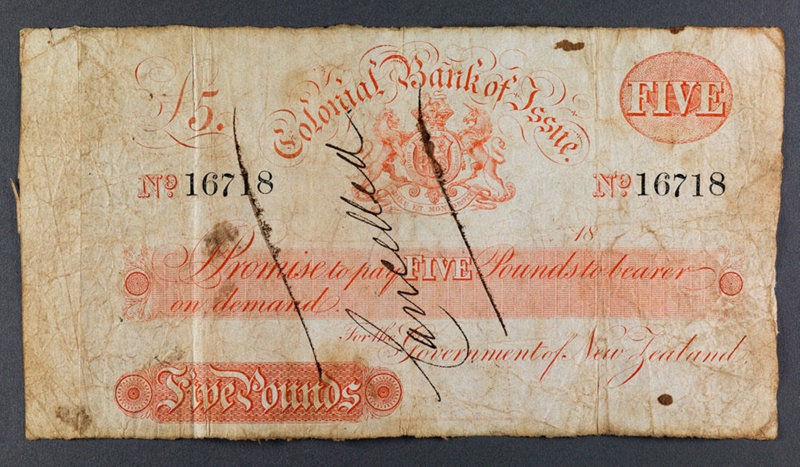 £5.
Colonial Bank of Issue.
FIVE
No 16718
No 16718
ET MON
Cancelled
18
Promise to pay FIVE Pounds to bearer
on demand.
For the Government of New Zealand
Five Pounds